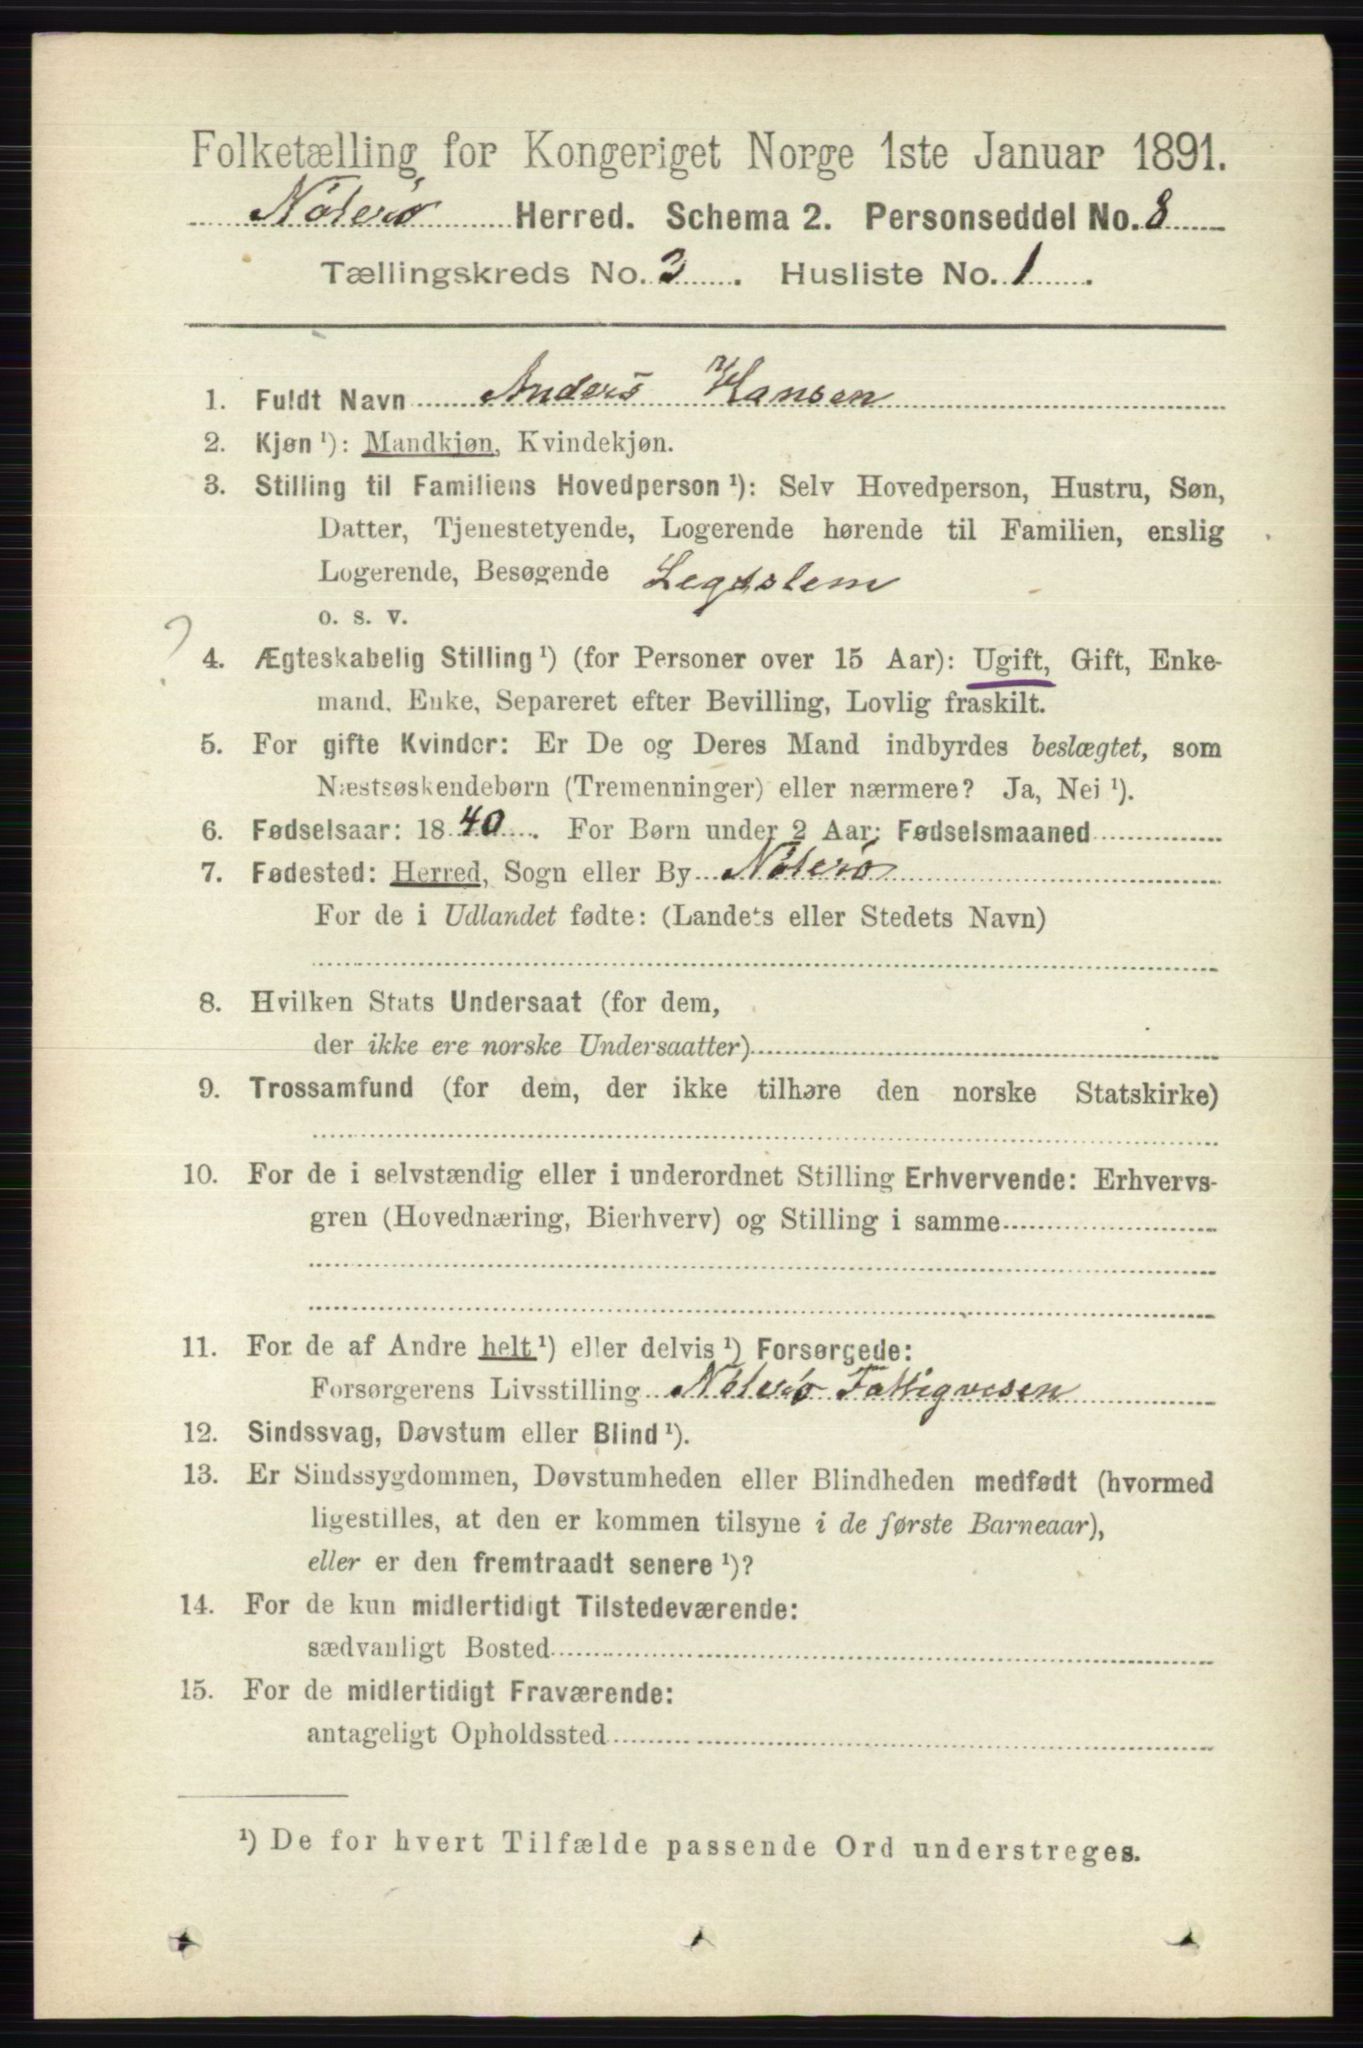 Folketælling for Kongeriget Norge 1ste Januar 1891.
Nøterø Herred. Schema 2. Personseddel No. 8
Tællingskreds No. 3. Husliste No. 1.
1. Fuldt Navn Anders Hansen
2. Kjøn ¹): Mandkjøn, Kvindekjøn.
3. Stilling til Familiens Hovedperson ¹): Selv Hovedperson, Hustru, Søn,
Datter, Tjenestetyende, Logerende hørende til Familien, enslig
Logerende, Besøgende Legdslem
o. s. v.
?
4. Ægteskabelig Stilling ¹) (for Personer over 15 Aar): Ugift, Gift, Enke-
mand, Enke, Separeret efter Bevilling, Lovlig fraskilt.
5. For gifte Kvinder: Er De og Deres Mand indbyrdes beslægtet, som
Næstsøskendebørn (Tremenninger) eller nærmere? Ja, Nei ¹).
6. Fødselsaar: 1840. For Børn under 2 Aar: Fødselsmaaned
7. Fødested: Herred, Sogn eller By Nøterø
For de i Udlandet fødte: (Landets eller Stedets Navn)
8. Hvilken Stats Undersaat (for dem,
der ikke ere norske Undersaatter)
9. Trossamfund (for dem, der ikke tilhøre den norske Statskirke)
10. For de i selvstændig eller i underordnet Stilling Erhvervende: Erhvervs-
gren (Hovednæring, Bierhverv) og Stilling i samme
11. For de af Andre helt ¹) eller delvis ¹) Forsørgede:
Forsørgerens Livsstilling Nøterø Fattigvesen
12. Sindssvag, Døvstum eller Blind ¹).
13. Er Sindssygdommen, Døvstumheden eller Blindheden medfødt (hvormed
ligestilles, at den er kommen tilsyne i de første Barneaar),
eller er den fremtraadt senere ¹)?
14. For de kun midlertidigt Tilstedeværende:
sædvanligt Bosted
15. For de midlertidigt Fraværende:
antageligt Opholdssted
¹) De for hvert Tilfælde passende Ord understreges.